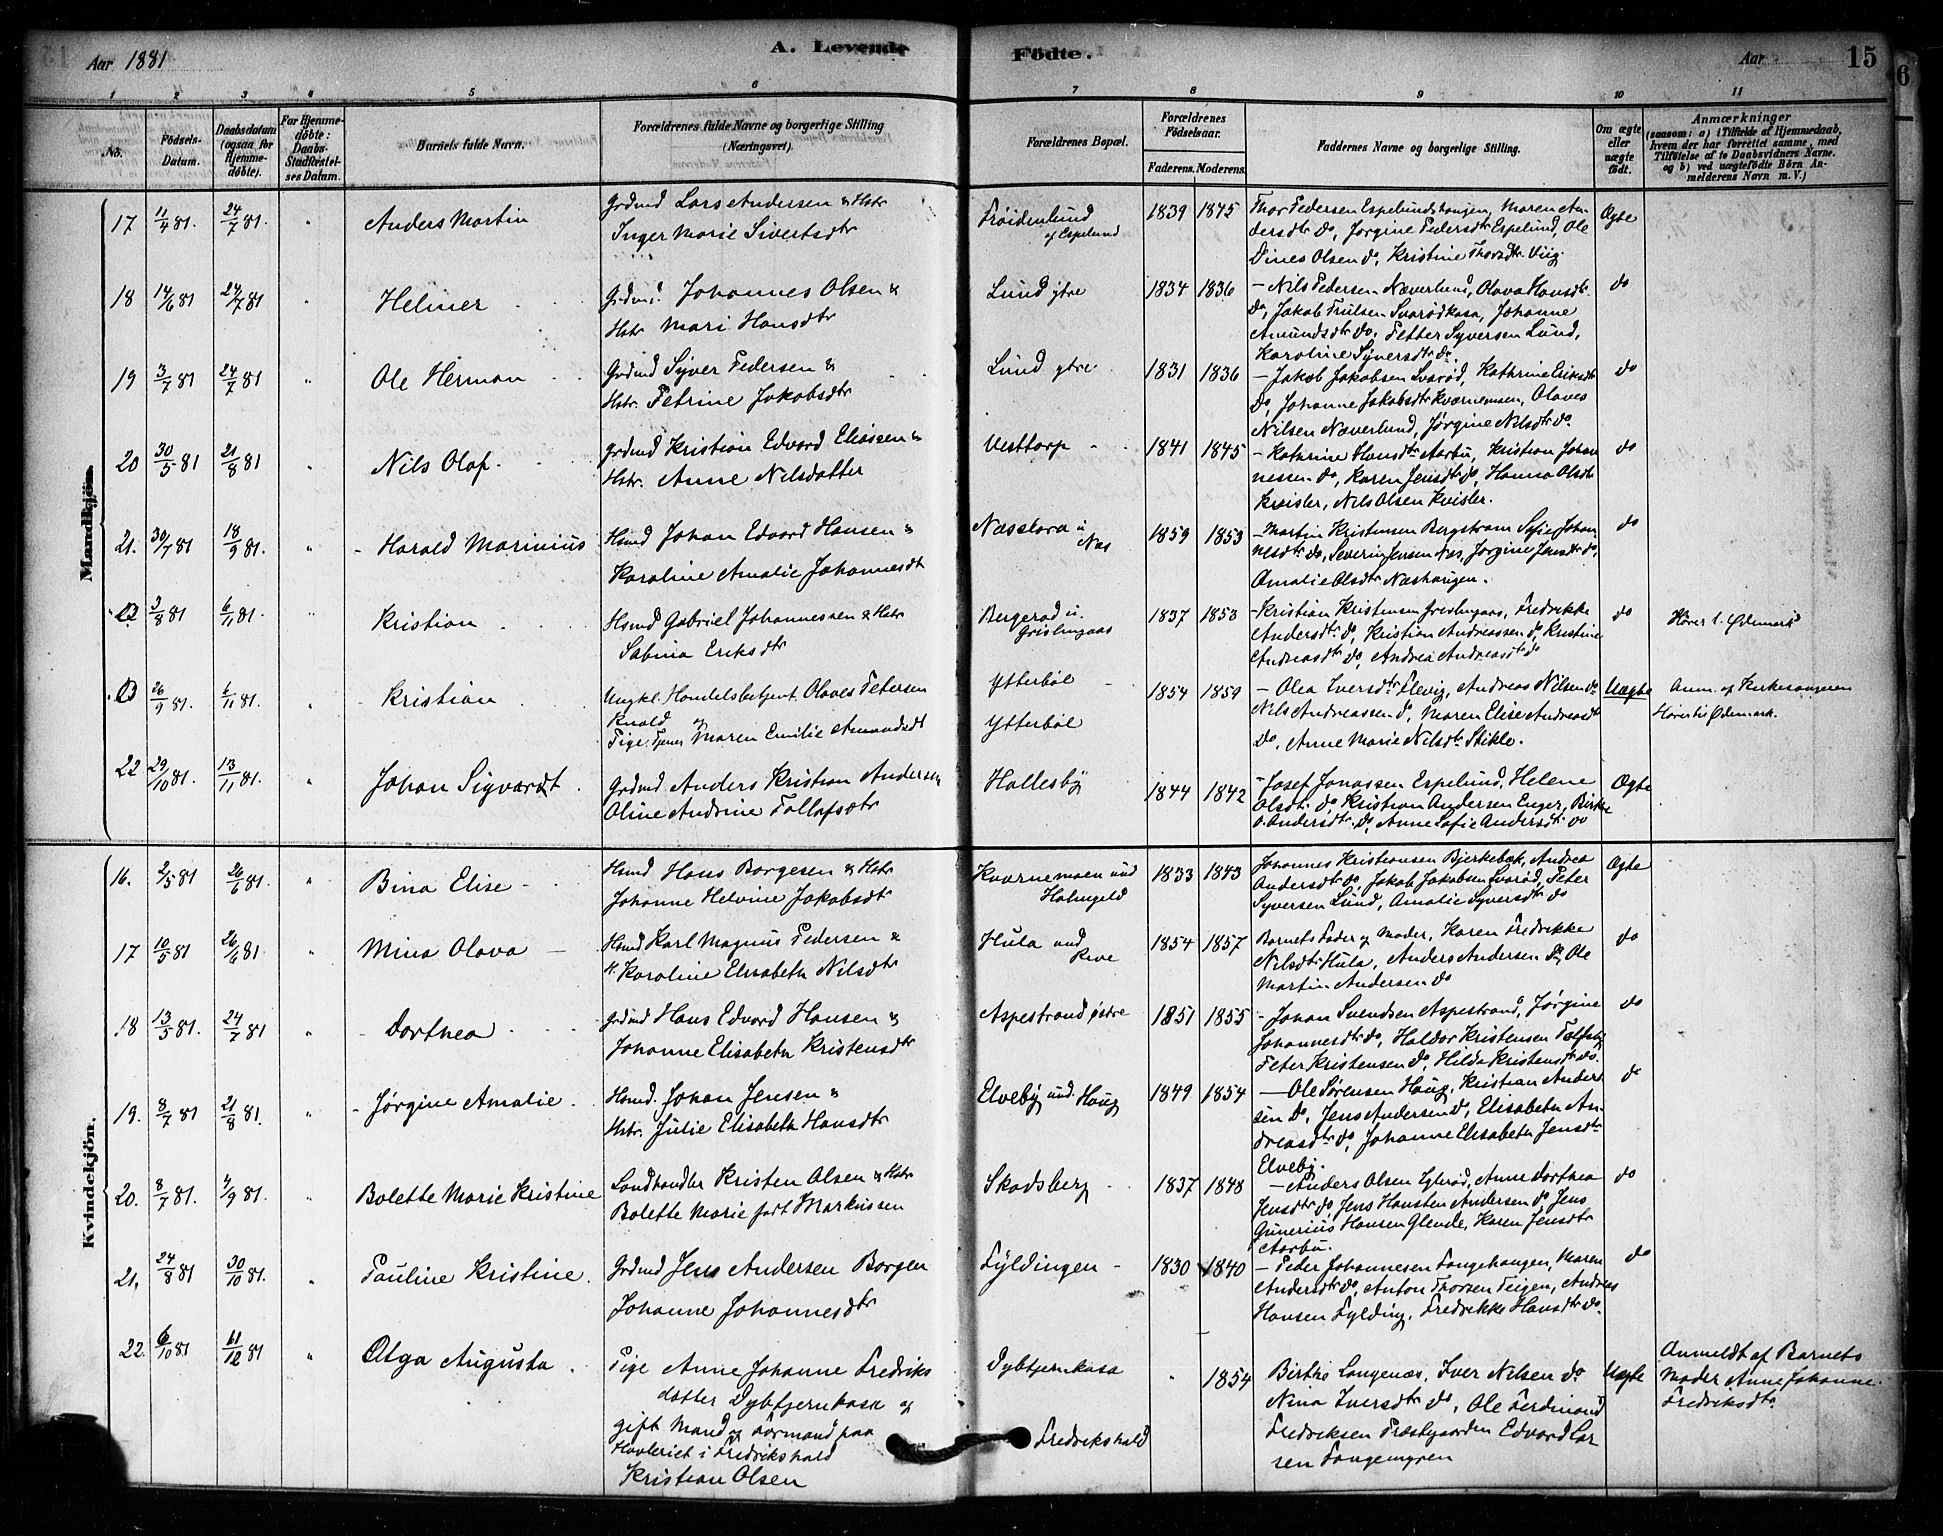 Aar 1881
A. Levende
Födte.
Aar
15
6
1 2 3 4 5 6 7 8 9 10 11
No.
Födsels-Datum.
Daabsdatum (ogsaa for Hjemmedöbte).
For Hjemmedöbte: Daabs-Stadfæstelses Datum.
Barnets fulde Navn.
Forældrenes fulde Navne og borgerlige Stilling (Næringsvei).
Forældrenes Bopæl.
Forældrenes Födselsaar.
Faderens. Moderens.
Faddernes Navne og borgerlige Stilling.
Om ægte eller uægte födt.
Anmærkninger
(saasom: a) i Tilfælde af Hjemmedaab, hvem der har forrettet samme, med Tilföielse af to Daabsvidners Navne. og b) ved uægtefödte Börn Anmelderens Navn m. V.)
Mandkjön.
17 11/4 81. 24/7 81. " Anders Martin
Grdmd Lars Andersen & Hstr
Inger Marie Sivertsdtr
Frøidenlund
af Espelund
1839 1845
Thor Pedersen Espelundshaugen, Maren An-
dersdtr do, Jørgine Pedersdtr Espelund, Ole
Dines Olsen do, Kristine Thorsdtr Viig.
Ægte
18 14/6 81 24/7 81 " Helmer
Grdmd. Johannes Olsen &
Hstr Mari Hansdtr
Lund ytre
1834 1836
- Nils Pedersen Næverlund, Olava Hansdtr
do, Jakob Trulsen Svarødkasa, Johanne
Amundsdtr do, Petter Syversen Lund,
Karoline Syversdtr do.
do
19 3/7 81 24/7 81 " Ole Herman
Grdmd Syver Pedersen &
Hstr. Petrine Jakobsdtr
Lund ytre
1831 1836
- Jakob Jakobsen Svarød, Kathrine Eriksdtr
do, Johanne Jakobsdtr Kværnemoen, Olaves
Nilsen Næverlund, Jørgine Nilsdtr do
do
20 30/5 81 21/8 81 " Nils Olaf.
Grdmd Kristian Edvard Eliassen &
Hstr. Anne Nilsdatter
Vesttorp
1841 1845
- Kathrine Hansdtr Aarbu, Kristian Johan
nessen do, Karen Jensdtr do, Hanna Olsdtr
Kvisler, Nils Olsen Kvisler.
do
21. 30/7 81 18/9 81. " Harald Marinius
Hsmd Johan Edvard Hansen &
Karoline Amalie Johannesdt
Næsslora u
Næs
1859 1853
- Martin Kristensen Bergstrøm Sofie Johan
nesdtr do, Severin Jensen Næs, Jørgine Jensdtr do,
Amalie Olsdtr Næshaugen.
do
3/8 81 6/11 81. " Kristian
Hsmd Gabriel Johannessen & Hstr
Sabina Eriksdtr
Bergerød u.
Grislingaas
1837 1853
- Kristian Kristensen Greslingaas, Fredrikke
Andersdtr do, Kristian Andreassen do, Kristine
Andreasdtr do, Andrea Andreasdtr do
do
Hører t. Ødemark
26/9 81. 6/11 81. " Kristian
Ungkl. Handelsbetjent Olaves Petersen
Knold og
Pige Tjener Maren Emilie Amundsdt
Ytterbøl
Ytterbøl
1854 1859
- Olea Iversdtr Elevig, Andreas Nilsen do
Nils Andreassen do, Maren Elise Andreasdt
do, Anne Marie Nilsdtr Stikle.
Uægte
Anm. af Kirkesangeren
Hører til Ødemark.
22 29/10 81. 13/11 81. " Johan Sigvardt
Grdmd Anders Kristian Andersen
Oline Andrine Tollefsdtr
Hallesby
1844 1842
- Josef Jonassen Espelund, Helene
Olsdtr do, Kristian Andersen Enger, Birthe
Andersdtr do, Anne Sofie Andersdtr do
Ægte
Kvindekjön.
16. 2/5 81 26/6 81. " Bina Elise
Hsmd Hans Borgesen & Hstr
Johanne Helvine Jakobsdt
Kværnemoen und
Holmgeld
1833 1843
Johannes Kristiansen Bjerkebæk, Andrea
Andersdtr do, Jakob Jakobsen Svarød, Peter
Syversen Lund, Amalie Syversdtr do
Ægte
17 10/5 81 26/6 81. " Mina Olava
Hsmd Karl Magnus Pedersen &
H. Karoline Elisabeth Nilsdtr
Hula und
Reve
1854 1857
Barnets Fader og Moder, Karen Fredrikke
Nilsdtr Hula, Anders Andersen do, Ole
Martin Andersen do
do
18 13/5 81. 24/7 81 " Dorthea
Grdmd Hans Edvard Hansen &
Johanne Elisabeth Kristensdtr
Aspestrand østre
1851 1855
- Johan Svendsen Aspestrand, Jørgine
Johannesdtr do, Haldor Kristensen
Peter Kristensen do, Hilda Kristensdtr do.
do
19. 8/7 81 21/8 81. " Jørgine Amalie
Hsmd. Johan Jensen &
Hstr. Julie Elisabeth Hansdtr
Elveby und. Haug
1849 1854
- Ole Sørensen Haug, Kristian Ander
sen do, Jens Andersen do, Elisabeth An-
dreasdtr do, Johanne Elisabeth Jensdtr
Elveby.
do
20. 8/7 81. 4/9 81. " Bolette Marie Kristine
Landhandler Kristen Olsen & Hstr
Bolette Marie født Markussen
Skodsberg
1837 1848
- Anders Olsen, Anne Dorthea
Jensdtr do, Jens Hansten Andersen do, Jens
Gunerius Hansen Glende, Karen Jensdtr
Aarbu.
do
21. 24/8 81 30/10 81. " Pauline Kristine.
Grdmd Jens Andersen Borgen
Johanne Johannesdtr
Fyldingen
1830 1840
- Peder Johannesen Tangehaugen, Maren
Andersdtr do, Anton Thorsen Teigen, Andreas
Hansen Fylding, Fredrikke Hansdtr do.
do
22. 6/10 81 11/12 81 " Olga Augusta
Pige Anne Johanne Fredriks
datter Dybtjernkasa og
gift Mand og Formand paa
Høvleriet i Fredrikshald
Kristian Olsen
Dybtjernkasa
Fredrikshald
" 1854
Birthe Langenæs, Iver Nilsen do
Nina Iversdtr do, Ole Ferdinand
Fredriksen Præstgaarden Edvard Lar
sen Tangemyren
Uægte
Anmeldt af Barnets
Moder Anne Johanne
Fredriksdtr